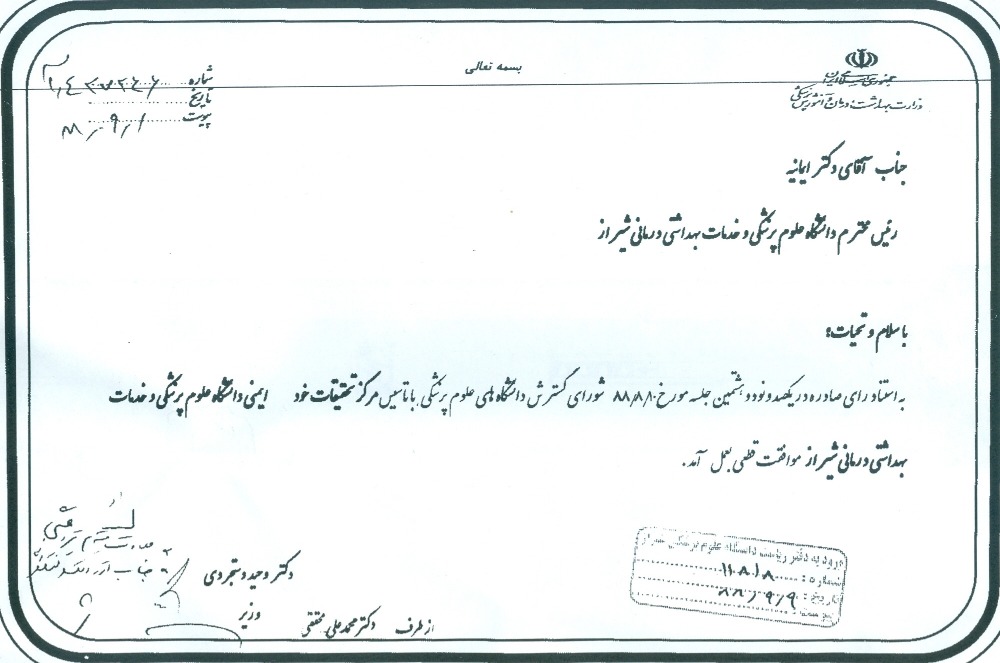 بسمه تعالی
جمهوری اسلامی ایران
وزارت بهداشت، درمان و آموزش پزشکی
شماره
تاریخ
پیوست
۸۸/۹/۱
جناب آقای دکتر ایمانیه
رئیس محترم دانشگاه علوم پزشکی و خدمات بهداشتی درمانی شیراز
با سلام و تحیات؛
به استناد رای صادره در یکصد و نود و هشتمین جلسه مورخ ۸۸/۸/۱۰ شورای گسترش دانشگاه های علوم پزشکی، با تاسیس مرکز تحقیقات خود ایمنی دانشگاه علوم پزشکی و خدمات
بهداشتی درمانی شیراز موافقت قطعی بعمل آمد.
دکتر وحید دستجردی
وزیر
از طرف دکتر محمدعلی محققی
ورود به دفتر ریاست دانشگاه علوم پزشکی شیراز
شماره : ۱۱۰۸/۸
تاریخ : ۸۸/۰۹/۹